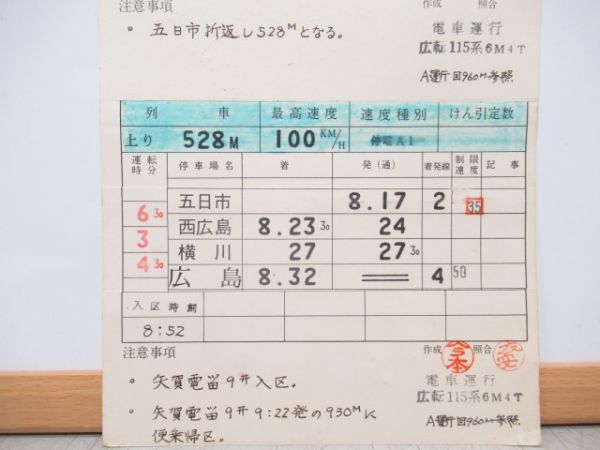 注意事項
作成 照合
・ 五日市折返し528Mとなる。
電車運行
広転115系6M4T
A運行図960M参照
列車 最高速度 速度種別 けん引定数
上り 528M 100KM/H 停電A1
運転時分 停車場名 着 発(通) 着発線 制限速度 記事
五日市 8.17 2 35
6 30 西広島 8.23 30 24
3 横川 27 27 30
4 30 広島 8.32 ══ 4 50
入区時刻
8:52
注意事項
作成 照合
・ 矢賀電留9井入区。
電車運行
広転115系6M4T
・ 矢賀電留9井9:22発の930MK
便乗帰区。
A運行図960M参照